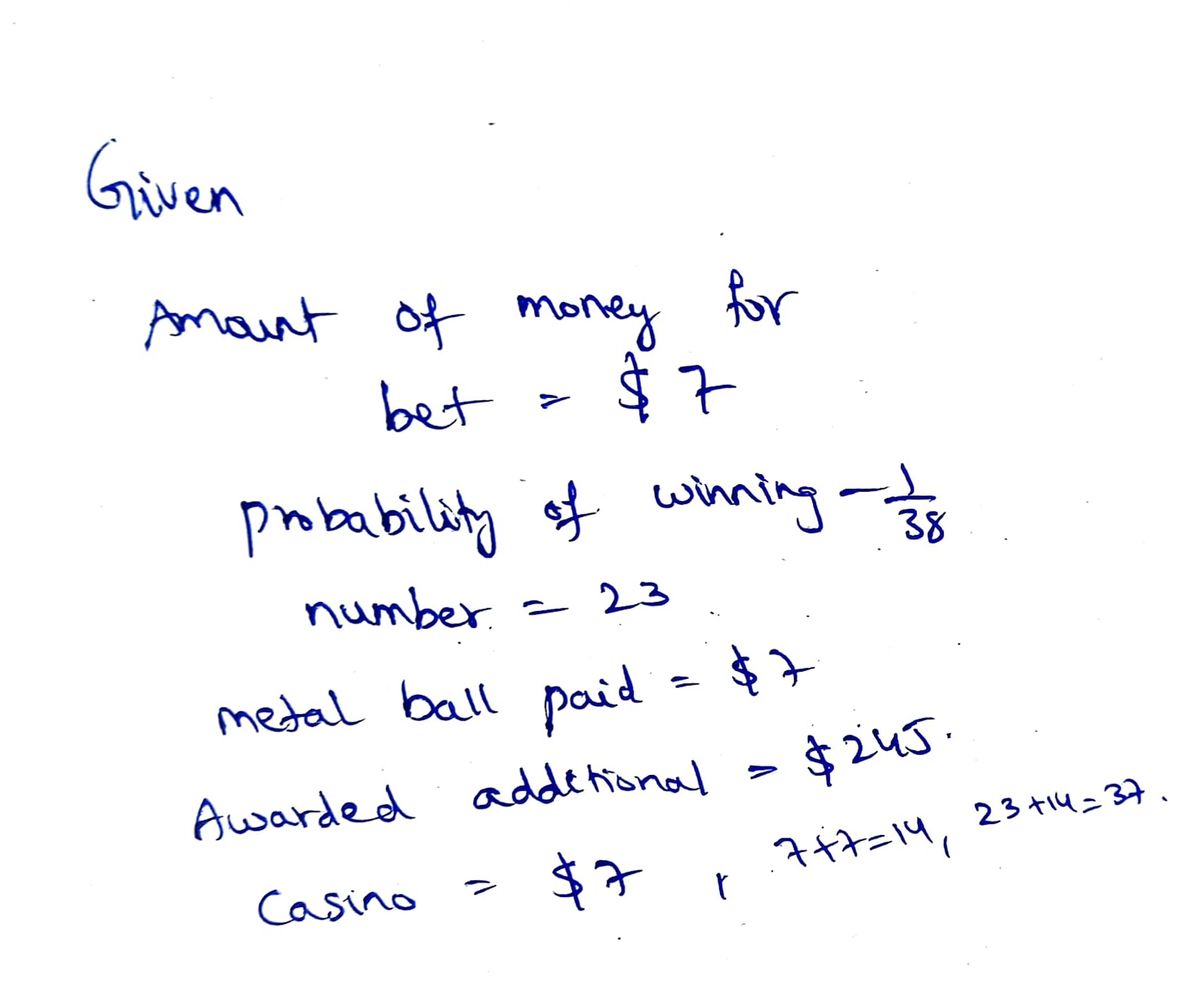 Given
Amount of money for
bet = $7
probability of winning - 1/38
number = 23
metal ball paid = $7
Awarded additional = $245.
Casino = $7 , 7+7=14, 23+14=37.